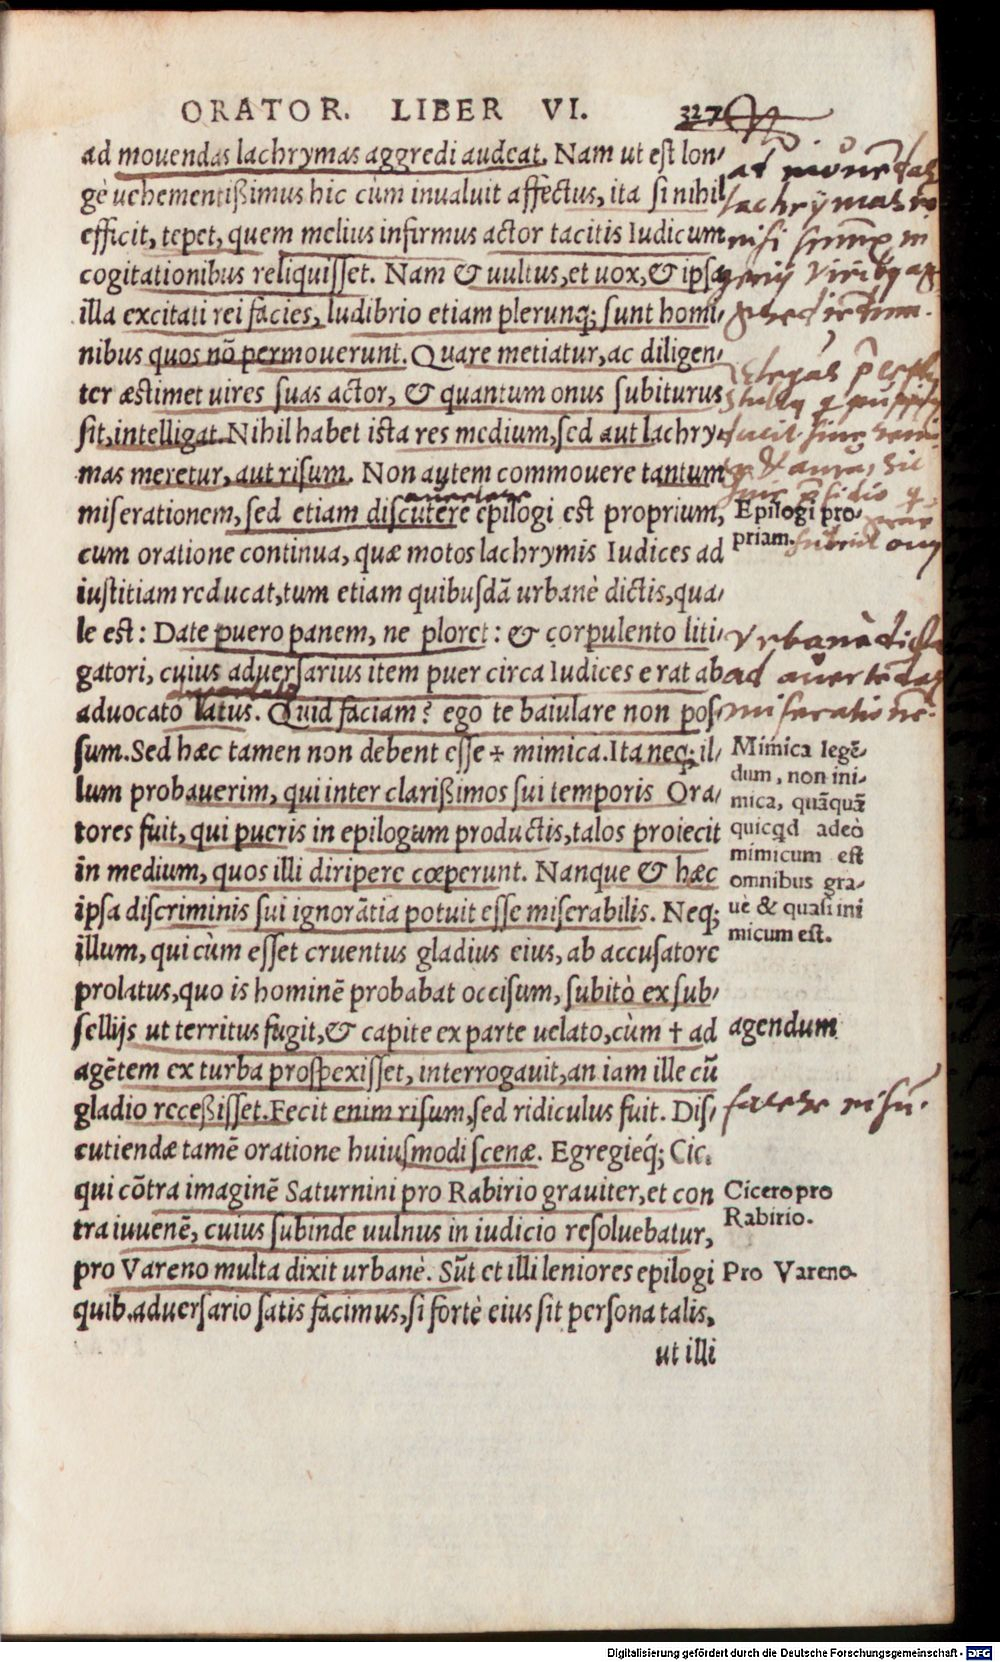 ORATOR. LIBER VI. 327
ad mouendas lachrymas aggredi audeat. Nam ut est lon-
gè uehementißimus hic cùm inualuit affectus, ita si nihil
efficit, tepet, quem melius infirmus actor tacitis Iudicum
cogitationibus reliquisset. Nam & uultus, et uox, & ipsa
illa excitati rei facies, ludibrio etiam plerunq; sunt homi-
nibus quos nō permouerunt. Quare metiatur, ac diligen-
ter æstimet uires suas actor, & quantum onus subiturus
sit, intelligat. Nihil habet ista res medium, sed aut lachry-
mas meretur, aut risum. Non autem commouere tantum
miserationem, sed etiam discutere epilogi est proprium,
cum oratione continua, quæ motos lachrymis Iudices ad
iustitiam reducat, tum etiam quibusdā urbanè dictis, qua-
le est: Date puero panem, ne ploret: & corpulento liti-
gatori, cuius aduersarius item puer circa Iudices erat ab
aduocato latus. Quid faciam? ego te baiulare non pos-
sum. Sed hæc tamen non debent esse + mimica. Ita neq; il-
lum probauerim, qui inter clarißimos sui temporis Ora-
tores fuit, qui pueris in epilogum productis, talos proiecit
in medium, quos illi diripere cœperunt. Nanque & hæc
ipsa discriminis sui ignorātia potuit esse miserabilis. Neq;
illum, qui cùm esset cruentus gladius eius, ab accusatore
prolatus, quo is hominē probabat occisum, subitò ex sub-
sellijs ut territus fugit, & capite ex parte uelato, cùm † ad
agētem ex turba prospexisset, interrogauit, an iam ille cū
gladio receßisset. Fecit enim risum, sed ridiculus fuit. Dis-
cutiendæ tamē oratione huiusmodi scenæ. Egregieq́; Cic.
qui cōtra imaginē Saturnini pro Rabirio grauiter, et con
tra iuuenē, cuius subinde uulnus in iudicio resoluebatur,
pro Vareno multa dixit urbanè. Sūt et illi leniores epilogi
quib. aduersario satis facimus, si fortè eius sit persona talis,
ut illi
ad mouēdas
lachrymas
nisi
Epilogi pro-
prium.
Vrbanè dicta
ad auertēdas
miserationē.
Mimica legē-
dum, non ini-
mica, quāquā
quicqd adeò
mimicum est
omnibus gra-
uè & quasi ini
micum est.
agendum
facere risū.
Cicero pro
Rabirio.
Pro Vareno.
Digitalisierung gefördert durch die Deutsche Forschungsgemeinschaft - DFG